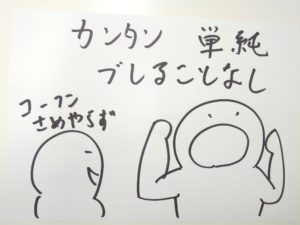 カンタン 単純
ブレることなし
コーフン
さめやらず